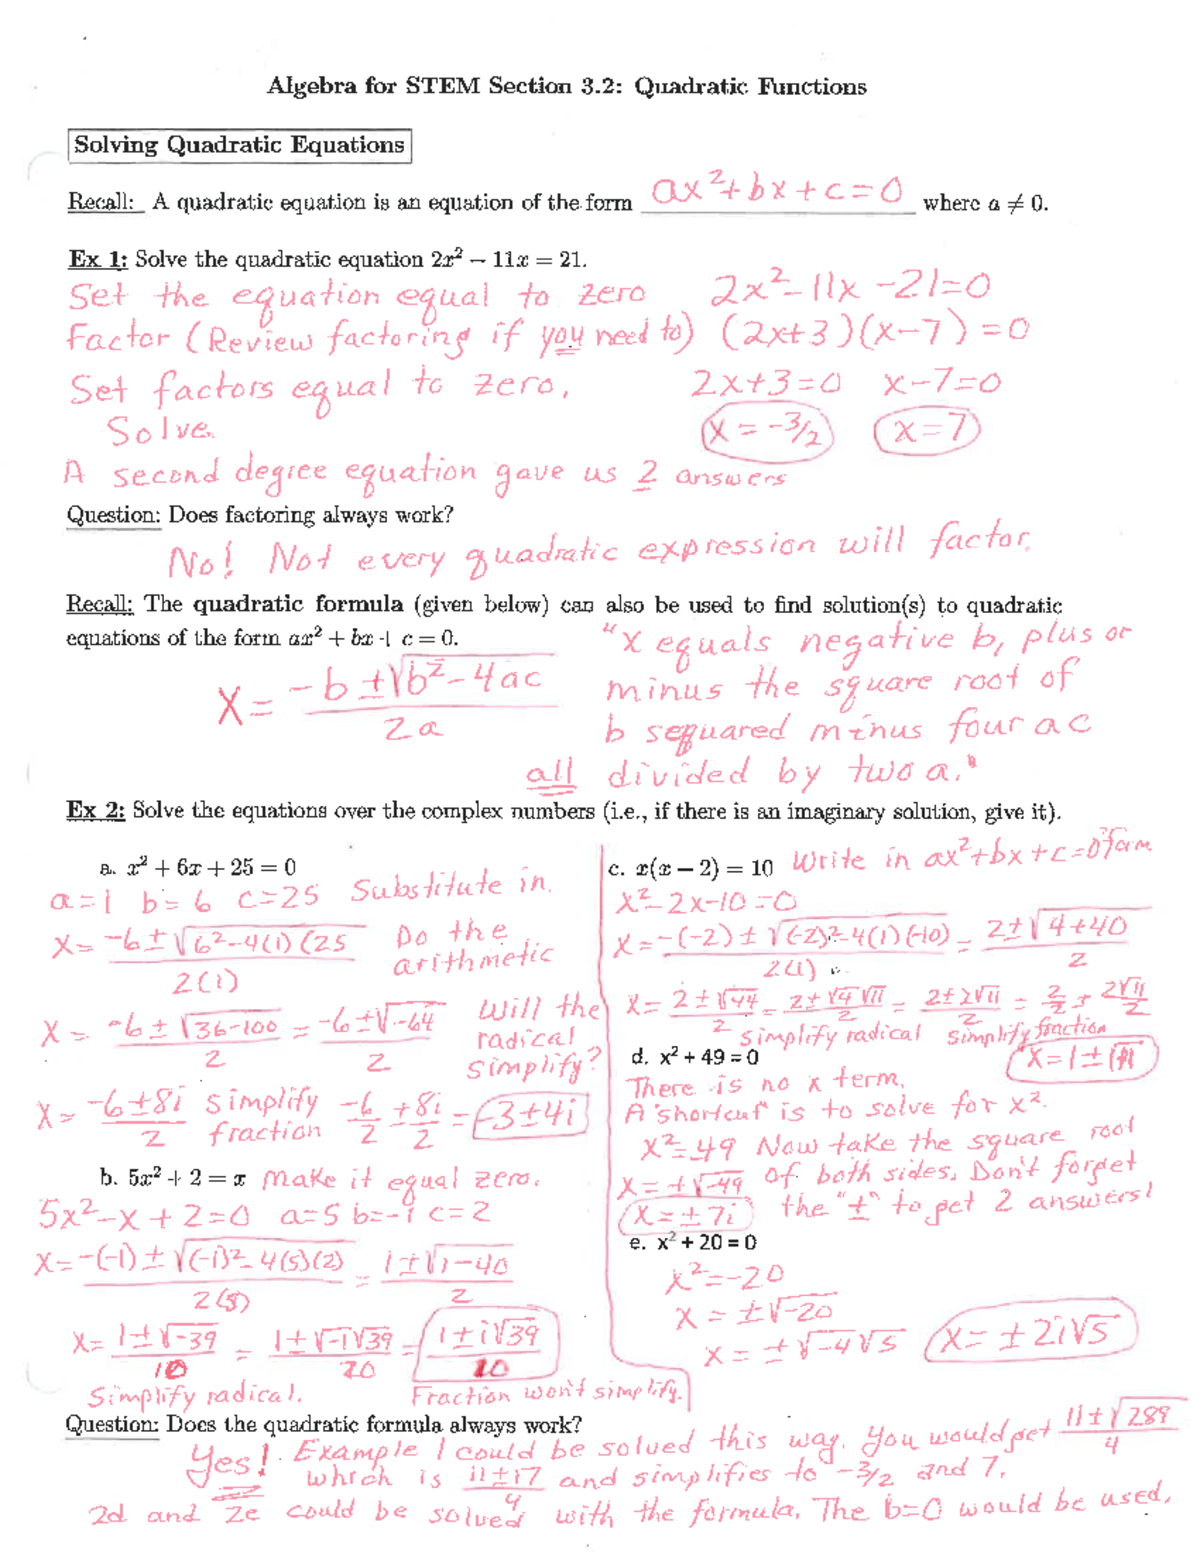 Algebra for STEM Section 3.2: Quadratic Functions
Solving Quadratic Equations
Recall: A quadratic equation is an equation of the form ax²+bx+c=0 where a ≠ 0.
Ex 1: Solve the quadratic equation 2x² − 11x = 21.
Set the equation equal to zero 2x²−11x−21=0
Factor (Review factoring if you need to) (2x+3)(x−7)=0
Set factors equal to zero. 2x+3=0 x−7=0
Solve. x=−3/2 x=7
A second degree equation gave us 2 answers
Question: Does factoring always work?
No! Not every quadratic expression will factor.
Recall: The quadratic formula (given below) can also be used to find solution(s) to quadratic
equations of the form ax² + bx + c = 0.
"x equals negative b, plus or
minus the square root of
b sequared minus four a c
all divided by two a."
X = (−b ± √(b²−4ac)) / 2a
Ex 2: Solve the equations over the complex numbers (i.e., if there is an imaginary solution, give it).
a. x² + 6x + 25 = 0
a=1 b=6 c=25 Substitute in.
X = (−6 ± √(6²−4(1)(25)) / 2(1) Do the arithmetic
X = (−6 ± √(36−100)) / 2 = (−6 ± √−64) / 2 Will the radical simplify?
X = (−6 ± 8i) / 2 simplify fraction −6/2 ± 8i/2 = −3±4i
b. 5x² + 2 = x Make it equal zero.
5x²−x+2=0 a=5 b=−1 c=2
X = (−(−1) ± √((−1)²−4(5)(2))) / 2(5) = (1 ± √(1−40)) / 2
X = (1 ± √−39) / 10 = (1 ± √−1√39) / 20 = (1 ± i√39) / 10
Simplify radical. Fraction won't simplify.
c. x(x − 2) = 10 Write in ax²+bx+c=0 form
x²−2x−10=0
X = (−(−2) ± √((−2)²−4(1)(−10)) / 2(1) = (2 ± √(4+40)) / 2
X = (2 ± √44) / 2 = (2 ± √4 √11) / 2 = (2 ± 2√11) / 2 = 2/2 ± 2√11/2
simplify radical simplify fraction
X=1±√11
d. x² + 49 = 0
There is no x term.
A "shortcut" is to solve for x².
x²=−49 Now take the square root
X=±√−49 of both sides. Don't forget
X=±7i the "±" to get 2 answers!
e. x² + 20 = 0
x²=−20
X = ±√−20
X = ±√−4√5 X = ±2i√5
Question: Does the quadratic formula always work?
Yes! Example 1 could be solved this way. You would get (11±√289) / 4
which is (11±17) / 4 and simplifies to −3/2 and 7.
2d and 2e could be solved with the formula. The b=0 would be used.